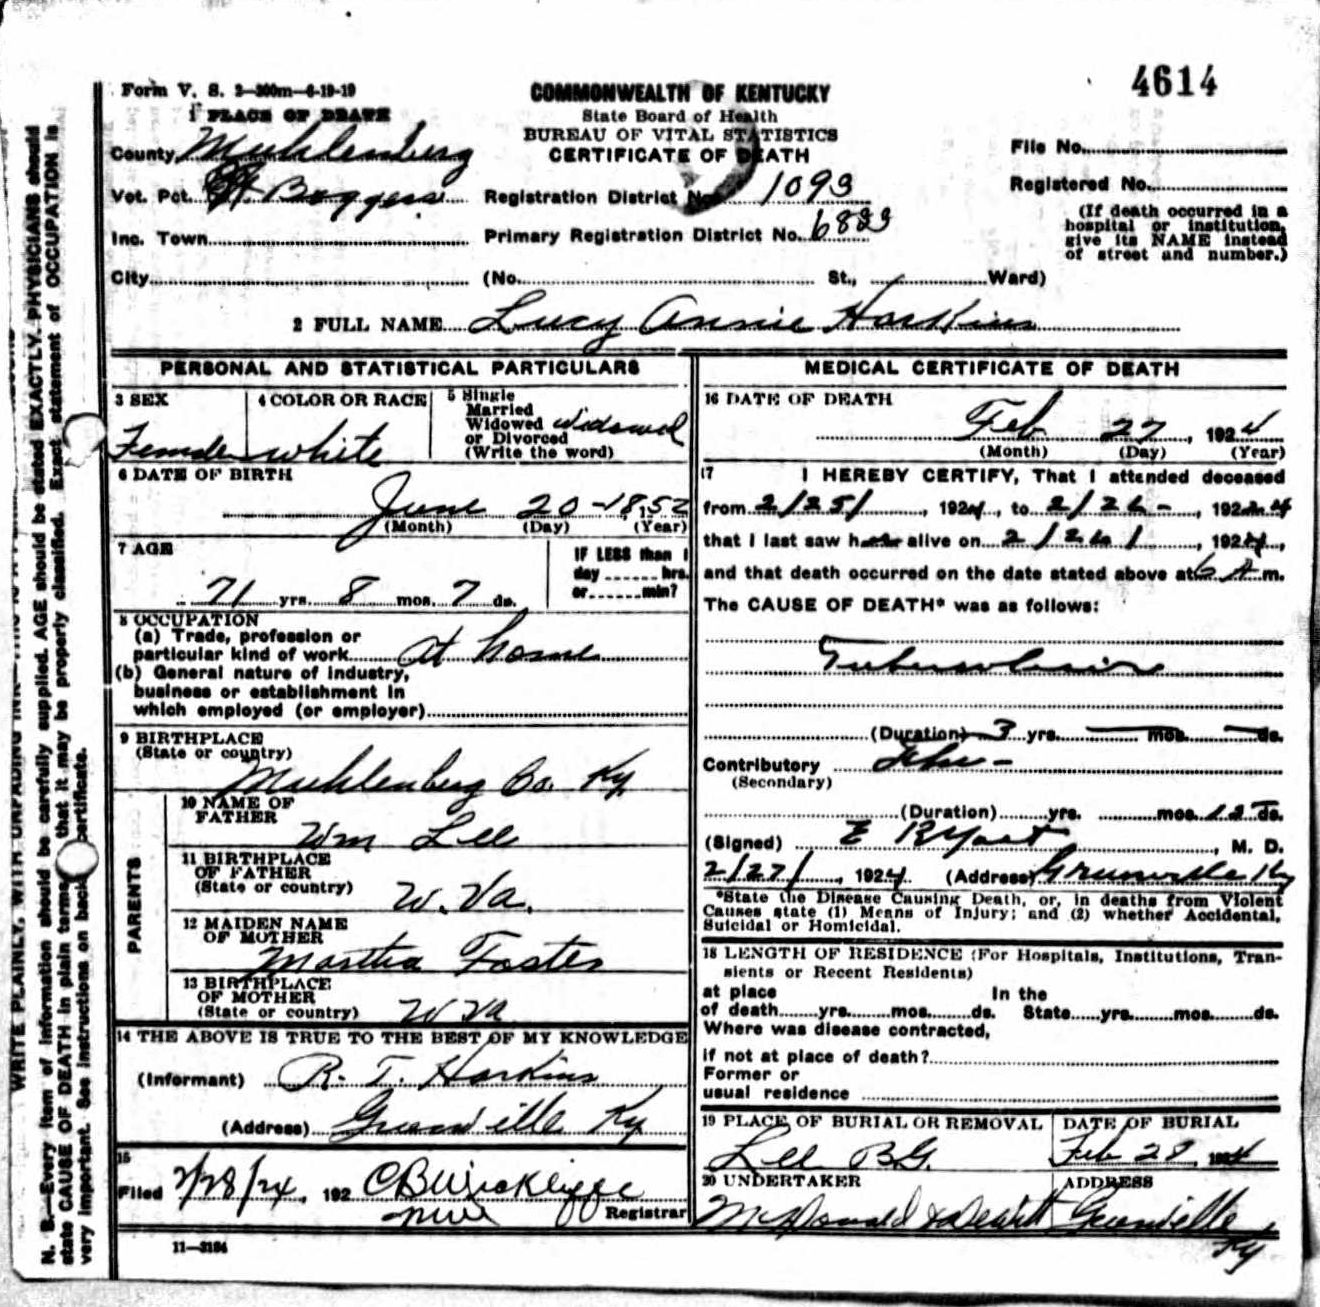 4614
Form V. S. 2—300m—6-19-19
COMMONWEALTH OF KENTUCKY
State Board of Health
BUREAU OF VITAL STATISTICS
CERTIFICATE OF DEATH
1 PLACE OF DEATH
County Muhlenberg
Vot. Pct. Boggess
Inc. Town
City
Registration District No. 1093
Primary Registration District No. 6823
(No. St., Ward)
File No.
Registered No.
(If death occurred in a
hospital or institution,
give its NAME instead
of street and number.)
2 FULL NAME Lucy Annie Harkins
PERSONAL AND STATISTICAL PARTICULARS
3 SEX
Female
4 COLOR OR RACE
white
5 Single
Married
Widowed
or Divorced
(Write the word)
widowed
6 DATE OF BIRTH
June 20 - 1852
(Month) (Day) (Year)
7 AGE
71 yrs. 8 mos. 7 ds.
IF LESS than 1
day hrs.
or min?
8 OCCUPATION
(a) Trade, profession or
particular kind of work At home
(b) General nature of industry,
business or establishment in
which employed (or employer)
9 BIRTHPLACE
(State or country)
Muhlenberg Co. Ky.
PARENTS
10 NAME OF
FATHER
Wm Lee
11 BIRTHPLACE
OF FATHER
(State or country)
W. Va.
12 MAIDEN NAME
OF MOTHER
Martha Foster
13 BIRTHPLACE
OF MOTHER
(State or country)
W Va
14 THE ABOVE IS TRUE TO THE BEST OF MY KNOWLEDGE
(Informant) R. T. Harkins
(Address) Greenville Ky
15
Filed 2/28/24, 192 C B Wickliffe
Registrar
11—3184
MEDICAL CERTIFICATE OF DEATH
16 DATE OF DEATH
Feb 27, 1924
(Month) (Day) (Year)
17 I HEREBY CERTIFY, That I attended deceased
from 2/25/, 1924, to 2/26-, 1924
that I last saw her alive on 2/26/, 1924,
and that death occurred on the date stated above at 6 A m.
The CAUSE OF DEATH* was as follows:
Tuberculosis
(Duration) 3 yrs. mos. ds.
Contributory Flu -
(Secondary)
(Duration) yrs. mos. ds.
(Signed) , M. D.
2/27/, 1924 (Address) Greenville Ky
*State the Disease Causing Death, or, in deaths from Violent
Causes state (1) Means of Injury; and (2) whether Accidental,
Suicidal or Homicidal.
18 LENGTH OF RESIDENCE (For Hospitals, Institutions, Tran-
sients or Recent Residents)
at place In the
of death yrs. mos. ds. State yrs. mos. ds.
Where was disease contracted,
if not at place of death?
Former or
usual residence
19 PLACE OF BURIAL OR REMOVAL
Lee B.G.
DATE OF BURIAL
Feb 28, 1924
20 UNDERTAKER
McDonald & Dewitt
ADDRESS
Greenville Ky
N. B.—Every item of information should be carefully supplied. AGE should be stated EXACTLY. PHYSICIANS should
state CAUSE OF DEATH in plain terms that it may be properly classified. Exact statement of OCCUPATION is
very important. See instructions on back certificate.